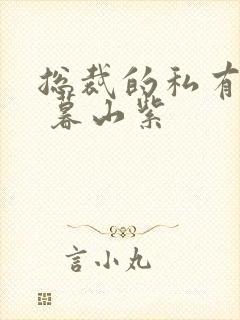 总裁的私有
暮山紫
言小丸